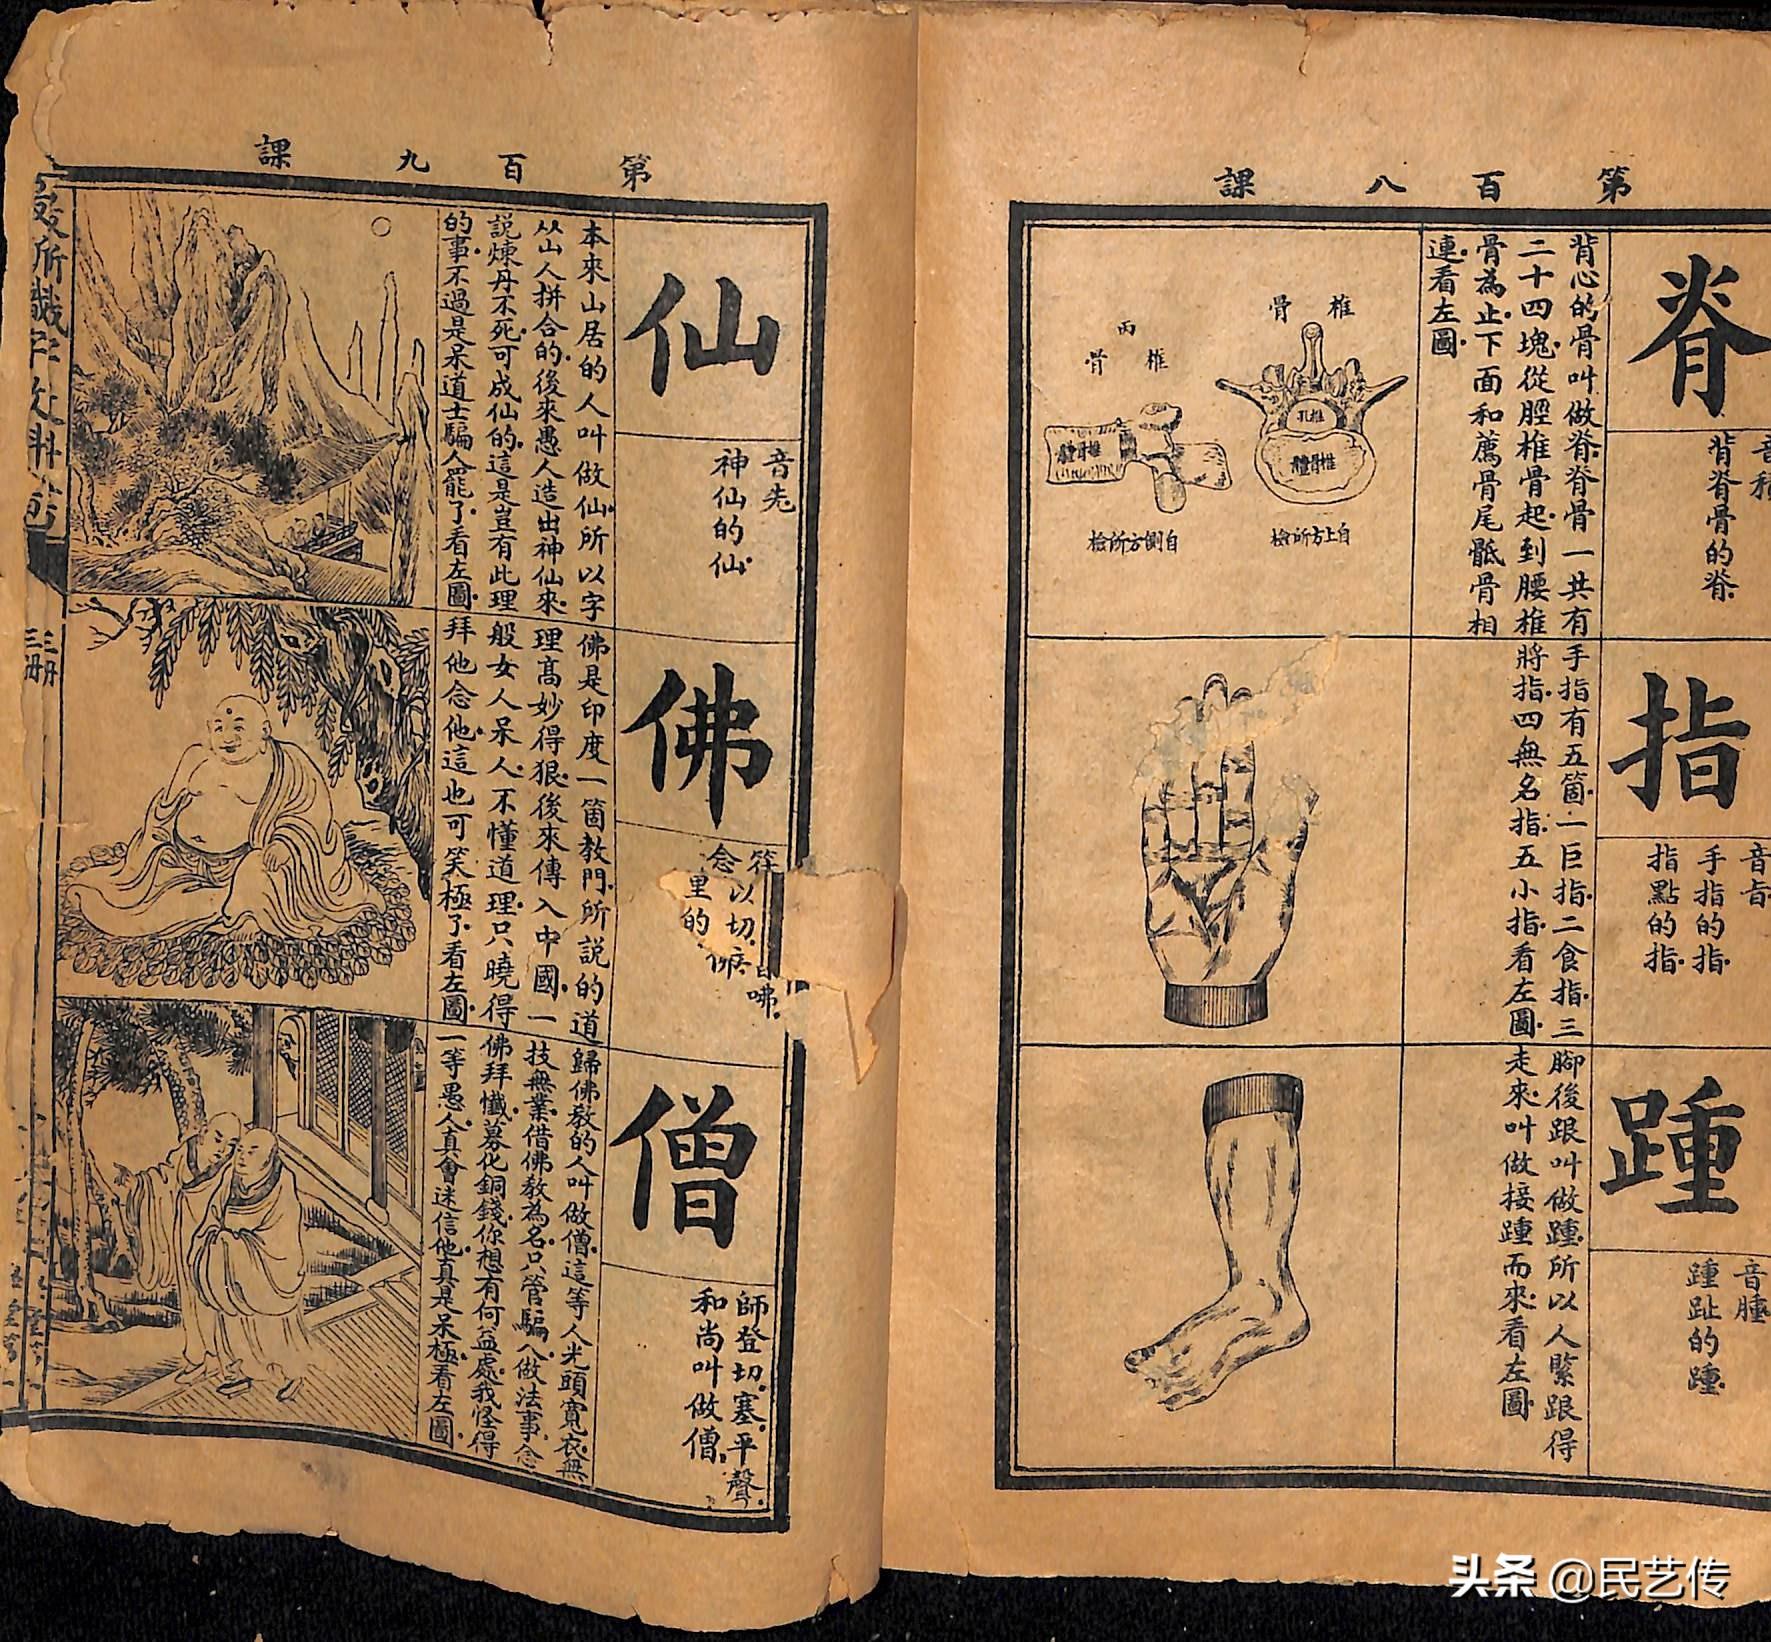 第百八課
脊
背脊骨的脊
背心的骨叫做脊脊骨一共有
二十四塊從脛椎骨起到腰椎
骨為止下面和薦骨尾骶骨相
連看左圖
椎骨
丙
椎骨
孔椎
體骨椎
體骨椎
自上方所檢
自側方所檢
指
音旨
手指的指
指點的指
手指有五箇一巨指二食指三
將指四無名指五小指看左圖
踵
音腫
踵趾的踵
腳後跟叫做踵所以人緊跟得
走來叫做接踵而來看左圖
第百九課
仙
音先
神仙的仙
本來山居的人叫做仙所以字
从山人拼合的後來愚人造出神仙來
說煉丹不死可成仙的這是豈有此理
的事不過是呆道士騙人罷了看左圖
佛
以切
念
里的
佛是印度一箇教門所說的道
理高妙得狠後來傳入中國一
般女人呆人不懂道理只曉得
拜他念他這也可笑極了看左圖
僧
師登切塞平聲
和尚叫做僧
歸佛教的人叫做僧這等人光頭寬衣無
技無業借佛教為名只管騙人做法事念
佛拜懺募化銅錢你想有何益處我怪得
一等愚人真會迷信他真是呆極看左圖
三册
头条 @民艺传